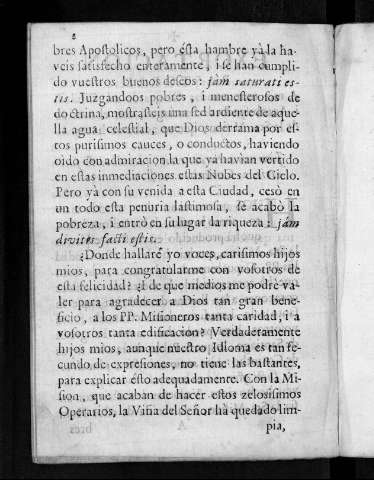 2
bres Apostolicos, pero ésta hambre yà la ha-
veis satisfecho enteramente, i se han cumpli-
do vuestros buenos deseos: jàm saturati es-
tis. Juzgandoos pobres, i menesterosos de
doctrina, mostrasteis una sed ardiente de aque-
lla agua celestial, que Dios derrama por es-
tos purisimos cauces, o conductos, haviendo
oido con admiracion la que ya havian vertido
en estas inmediaciones estas Nubes del Cielo.
Pero yà con su venida a esta Ciudad, cesò en
un todo esta penuria lastimosa, se acabò la
pobreza, i entrò en su lugar la riqueza: jàm
divites facti estis.
¿Donde hallarè yo voces, carisimos hijos
mios, para congratularme con vosotros de
esta felicidad? ¿I de que medios me podrè va-
ler para agradecer a Dios tan gran bene-
ficio, a los PP. Misioneros tanta caridad, i a
vosotros tanta edificacion? Verdaderamente
hijos mios, aunque nuestro Idioma es tan fe-
cundo de expresiones, no tiene las bastantes,
para explicar ésto adequadamente. Con la Mi-
sion, que acaban de hacer estos zelosisimos
Operarios, la Viña del Señor hà quedado lim-
pia,